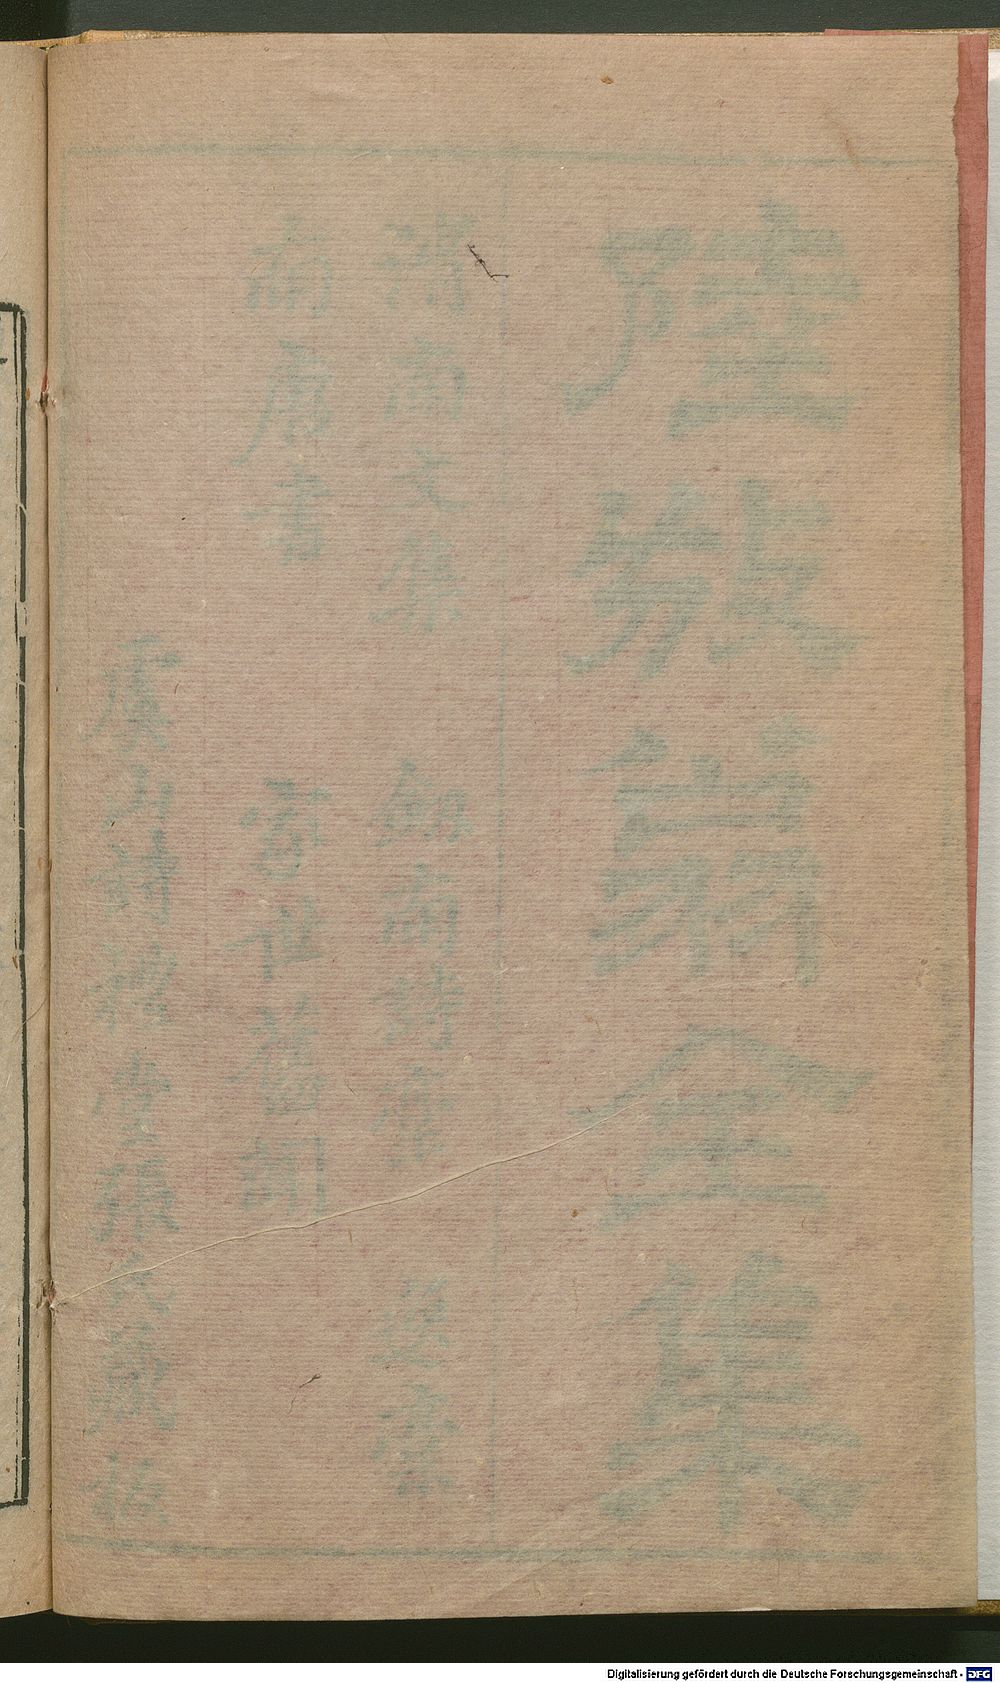 陸放翁全集
渭南文集 劍南詩藁 逸藁
南唐書 家世舊聞
虞山詩禮堂張氏藏板
Digitalisierung gefördert durch die Deutsche Forschungsgemeinschaft - DFG